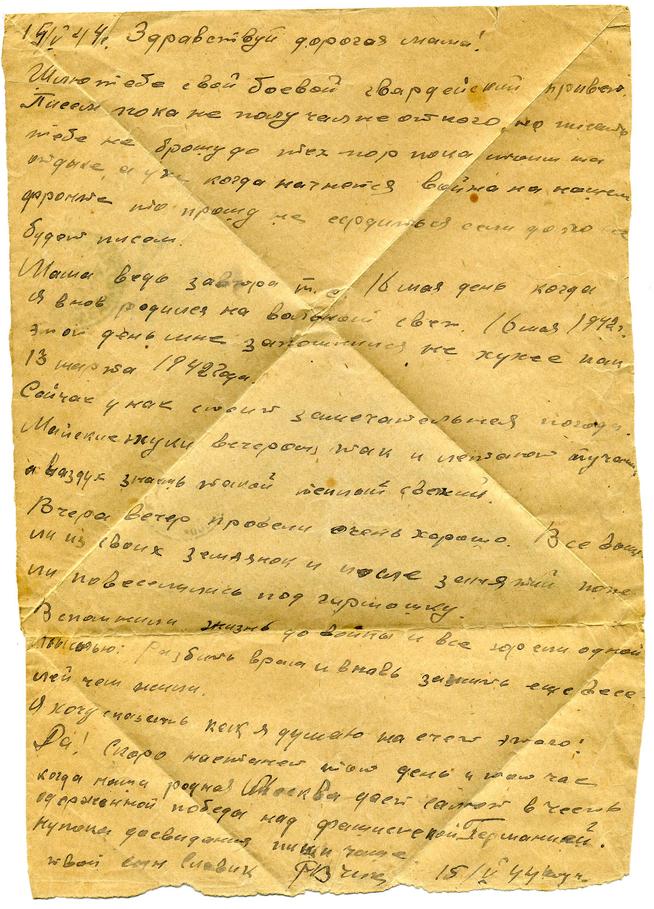 15/V 44г. Здравствуй дорогая мама!
Шлю тебе свой боевой гвардейский привет.
Писем пока не получал не от кого, но писать
тебе не брошу до тех пор пока стоим на
отдыхе, а уж когда начнется война на нашем
фронте то прошу не сердиться если долго не
будет писем.
Мама ведь завтра т.е 16 мая день когда
я внов родился на вольный свет. 16 мая 1942г.
этот день мне запомнился не хуже чем
13 марта 1942 года.
Сейчас у нас стоит замечательная погода.
Майские жуки вечером так и летают тучами
а воздух знаешь такой теплый свежий.
Вчера вечер провели очень хорошо. Все вышли
из своих землянок и после занятий
повеселились под гармошку.
Вспомнили жизнь до войны и все горели одной
мыслью: Разбить врага и вновь зажить еще весе
лей чем жили.
Я хочу сказать как я думаю на счет этого!
Да! Скоро настанет тот день и тот час
когда наша родная Москва даст салют в честь
одержанной победы над фашисткой Германией.
Ну пока досвидания пиши чаще
твой сын Славик 15/V 44